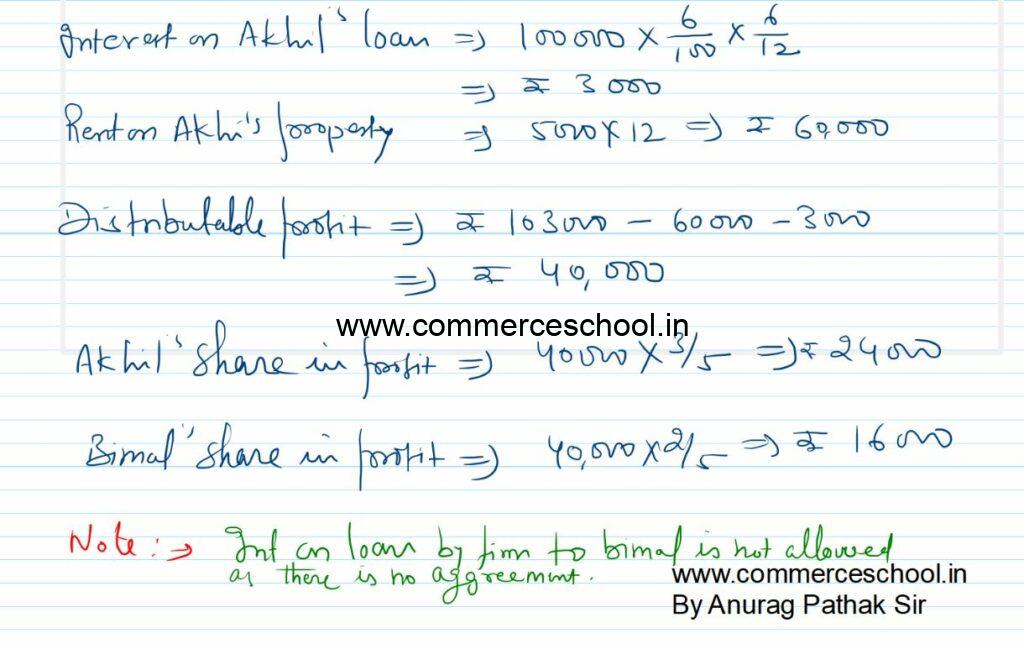 Interest on Akhil's loan => 100000 × 6/100 × 6/12
=> ₹ 3000
Rent on Akhi's property => 5000 × 12 => ₹ 60,000
Distributable profit => ₹ 103000 - 60000 - 3000
=> ₹ 40,000
www.commerceschool.in
Akhil's share in profit => 40000 × 3/5 => ₹ 24000
Bimal's share in profit => 40,000 × 2/5 => ₹ 16000
Note :→ Int on loan by firm to bimal is not allowed
as there is no aggreement.
www.commerceschool.in
By Anurag Pathak Sir